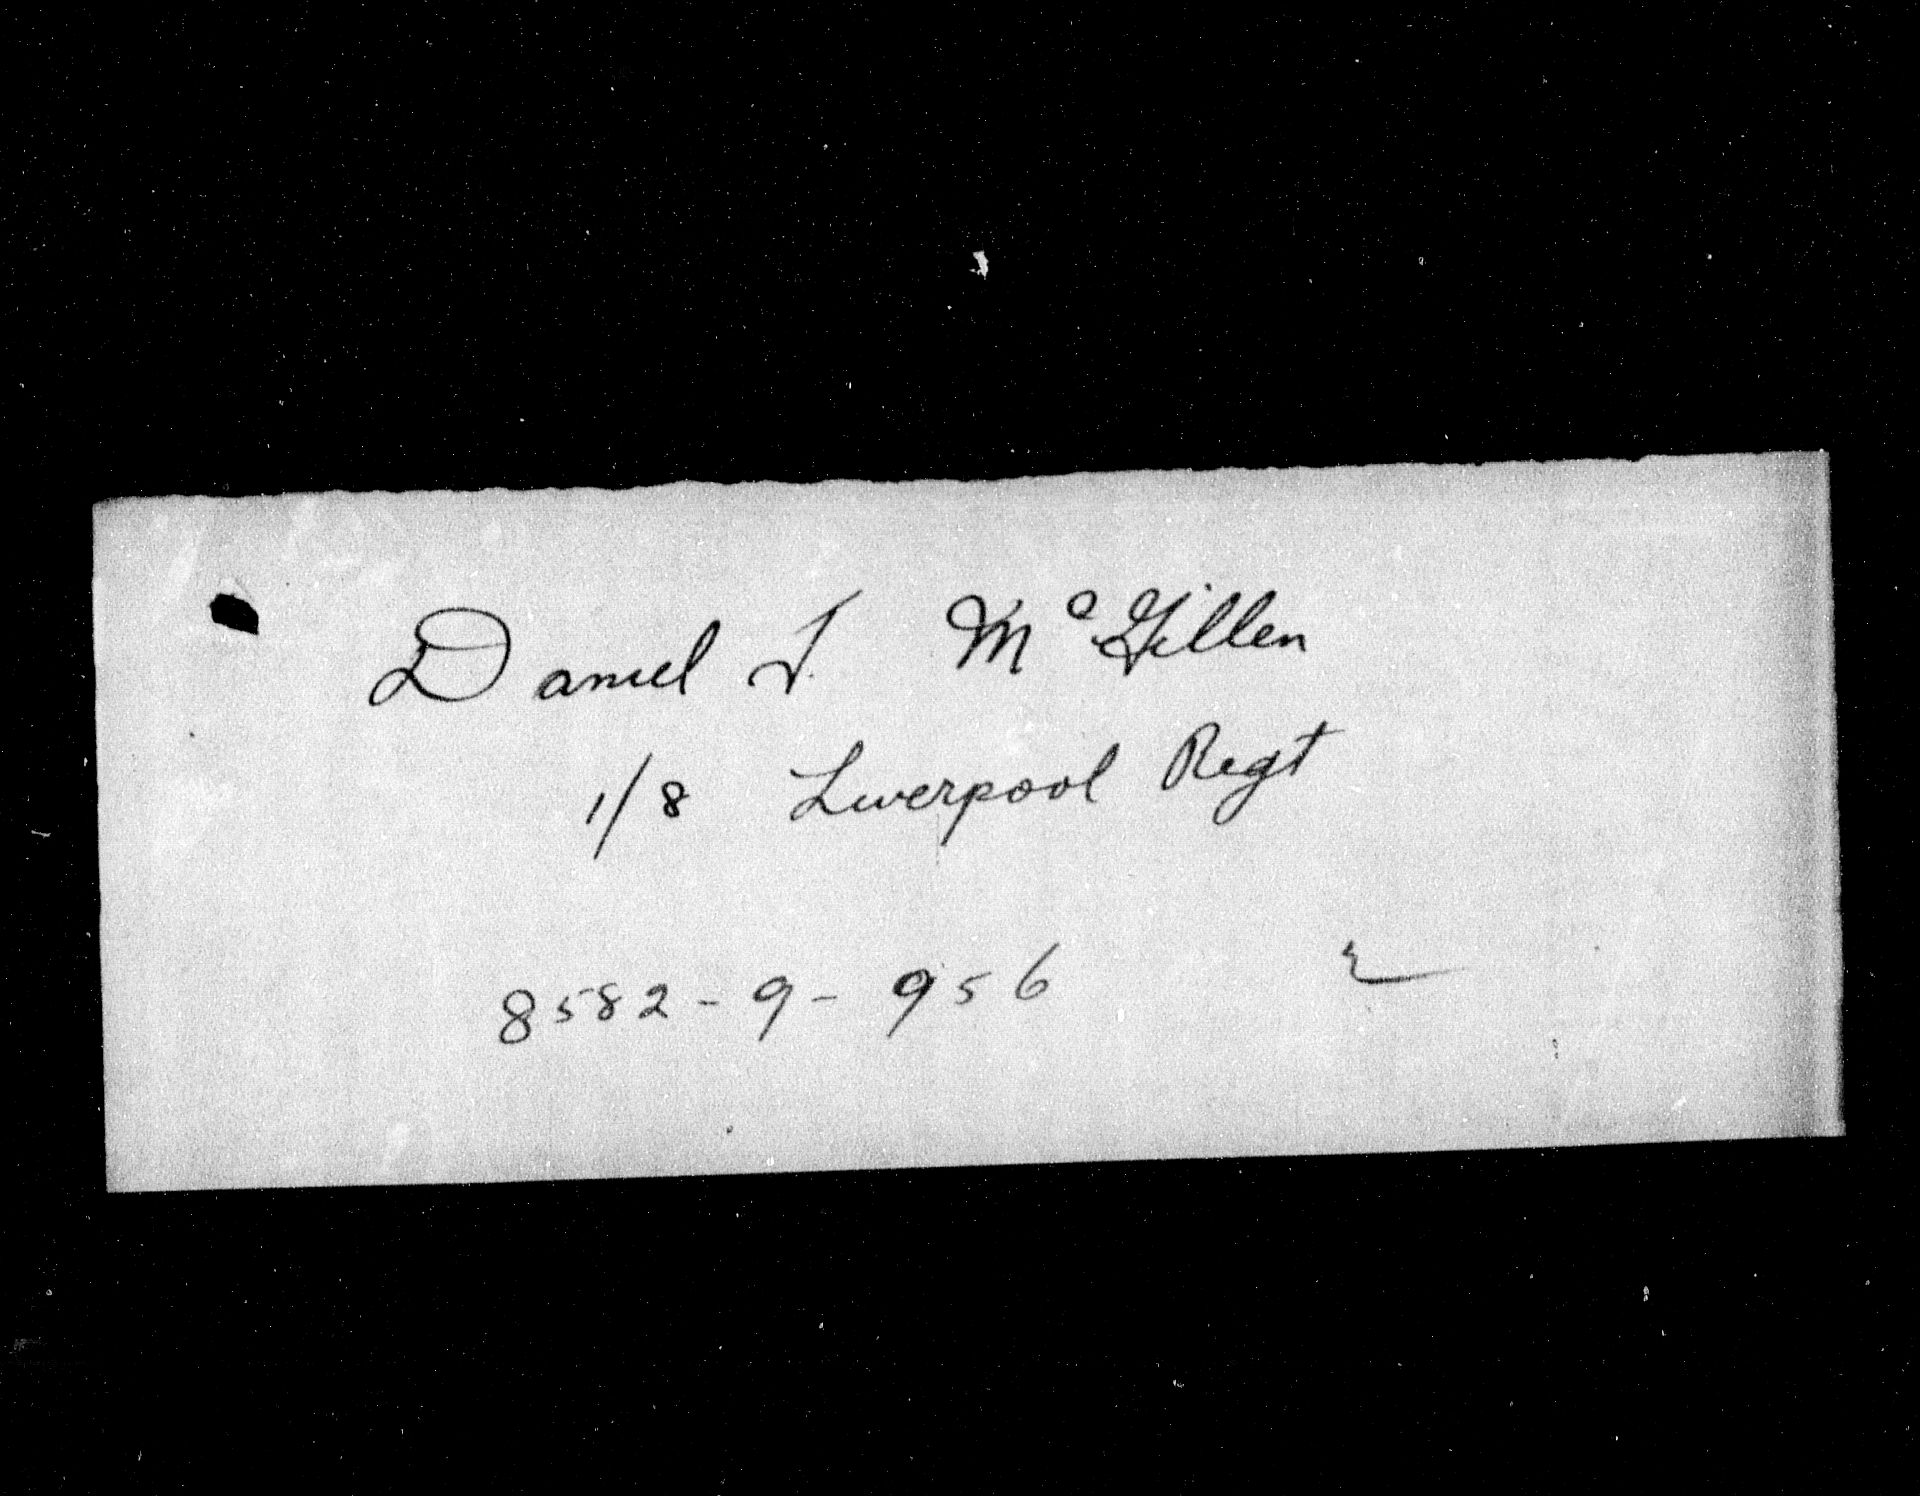 Daniel J. McGillen
1/8 Liverpool Regt
8582-9-956